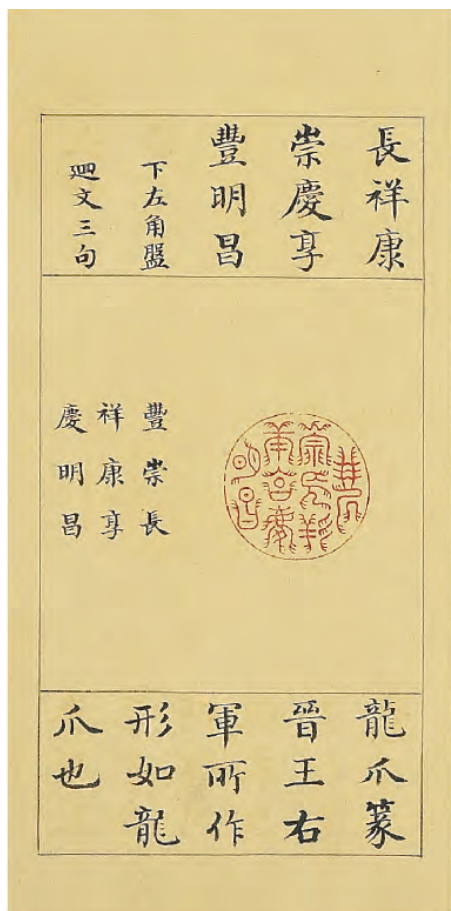 長祥康
崇慶享
豐明昌
下左角盤
廻文三句
豐
崇長祥
康享慶
明昌
豐崇長
祥康享
慶明昌
龍爪篆
晉王右
軍所作
形如龍
爪也